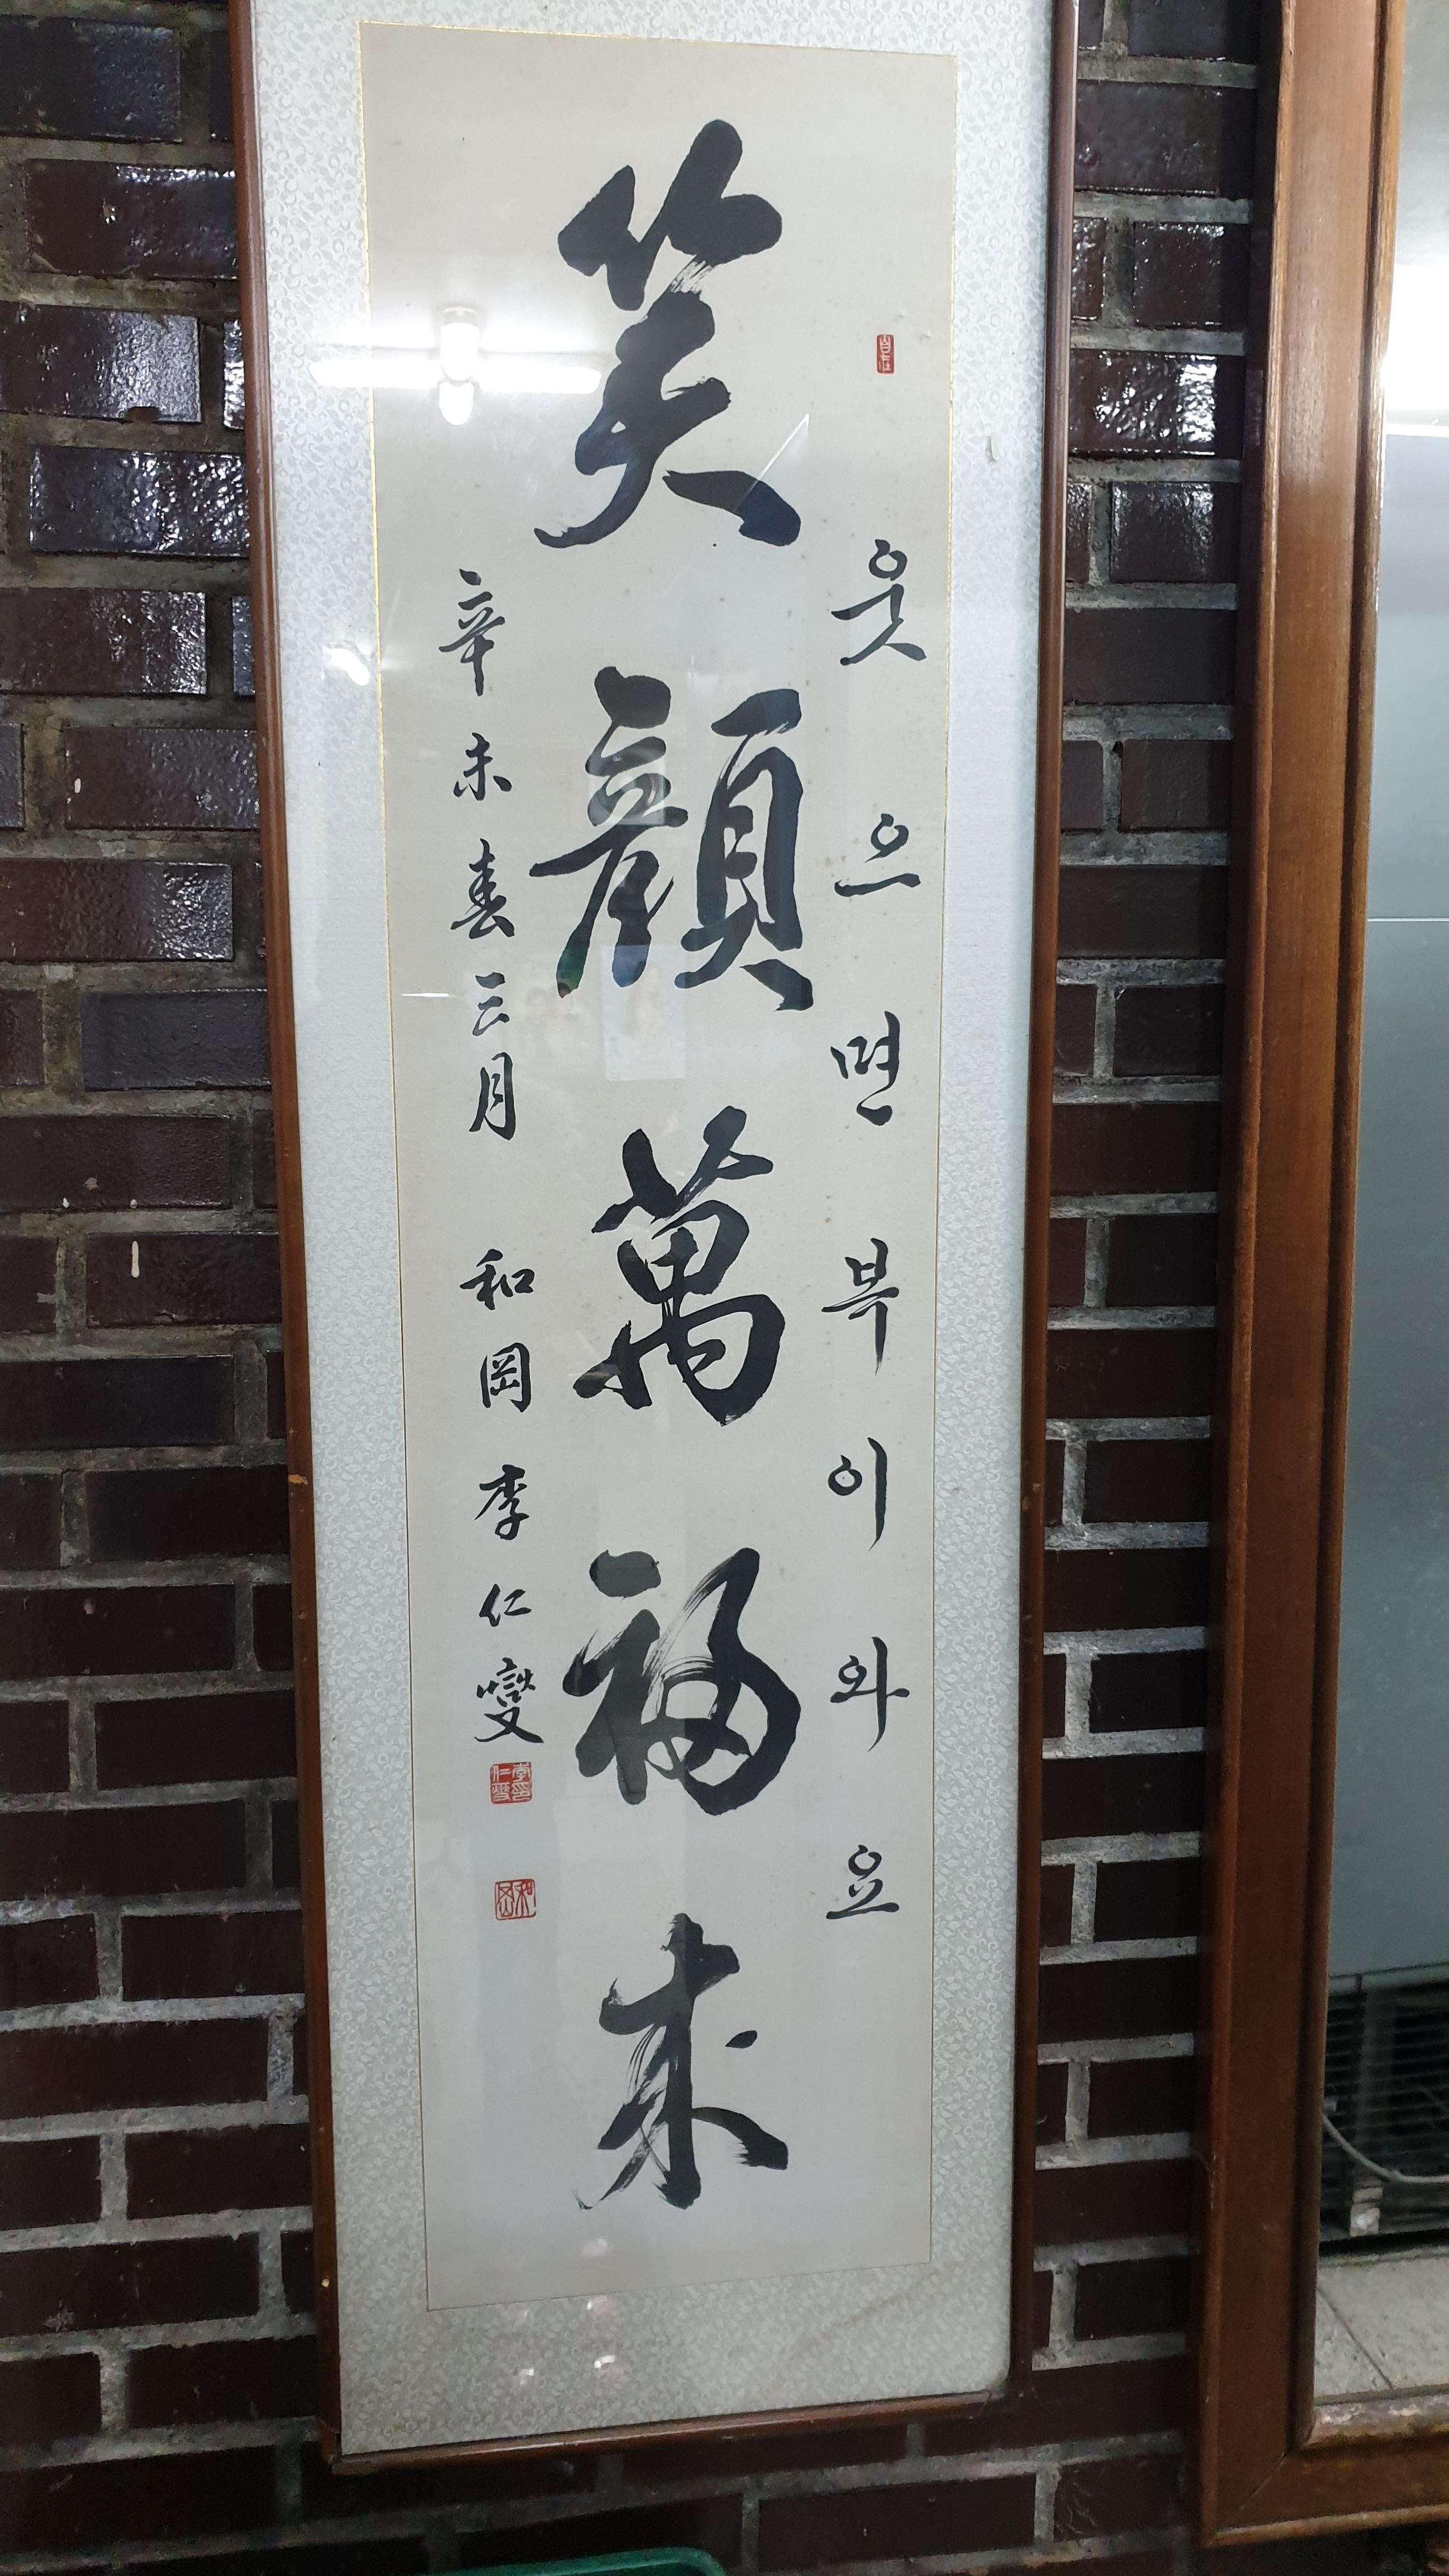 웃으면 복이 와요
笑顔萬福来
辛未春三月 和岡 李仁燮